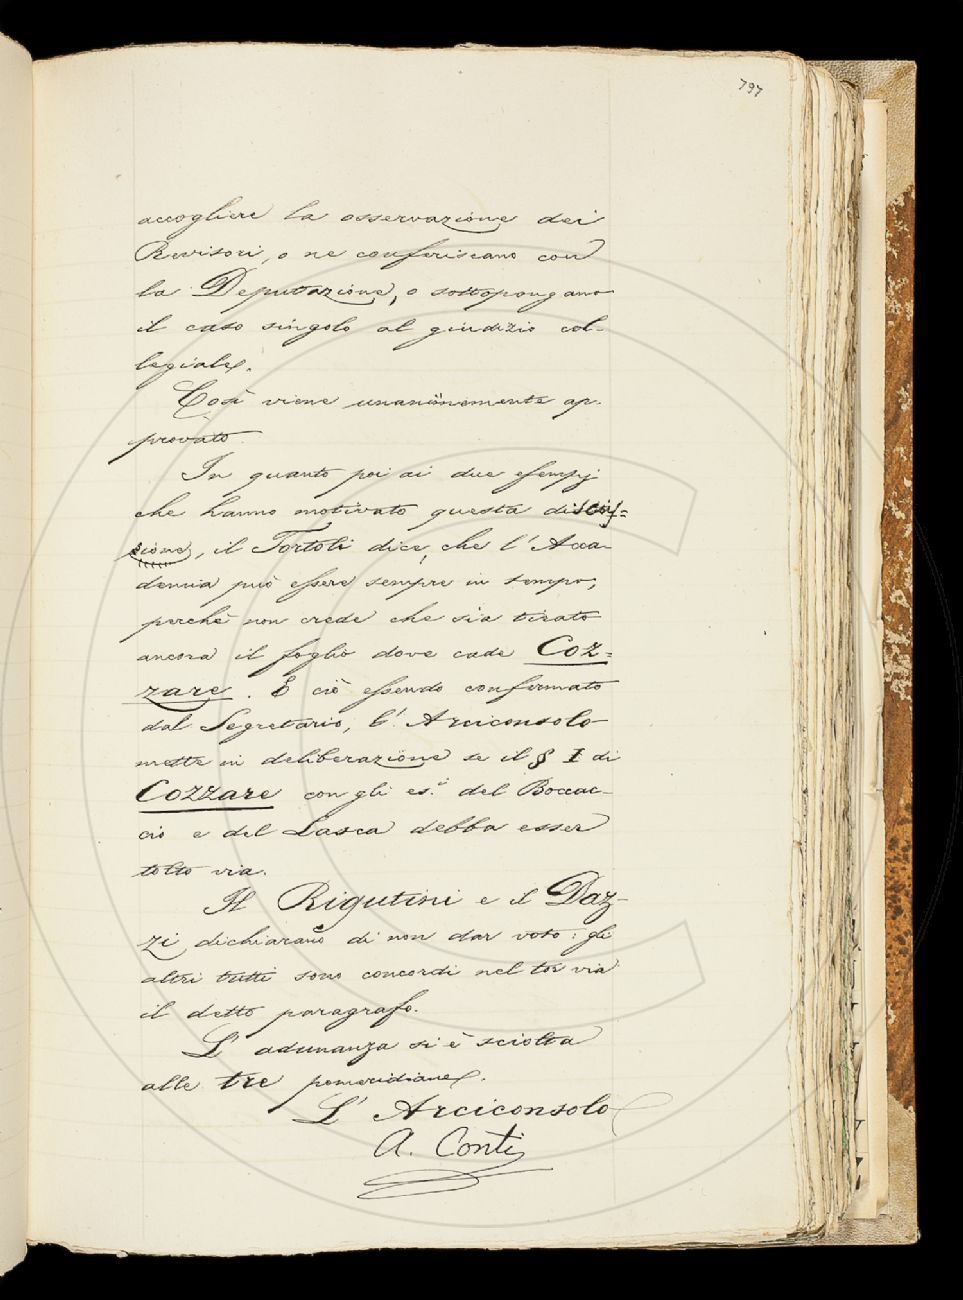 797
accogliere la osservazione dei
Revisori, o ne conferiscano con
la Deputazione, o sottopongano
il caso singolo al giudizio col-
legiale.
Così viene unanimemente ap-
provato.
In quanto poi ai due esempj
che hanno motivato questa discus=
sione, il Tortoli dice, che l'Acca-
demia può essere sempre in tempo,
perchè non crede che sia tirato
ancora il foglio dove cade Coz=
zare. E ciò essendo confermato
dal Segretario, l'Arciconsolo
mette in deliberazione se il § I di
Cozzare con gli es. del Boccac-
cio e del Lasca debba esser
tolto via.
Il Rigutini e il Daz-
zi dichiarano di non dar voto: gli
altri tutti sono concordi nel tor via
il detto paragrafo.
L'adunanza si è sciolta
alle tre pomeridiane.
L'Arciconsolo
A. Conti